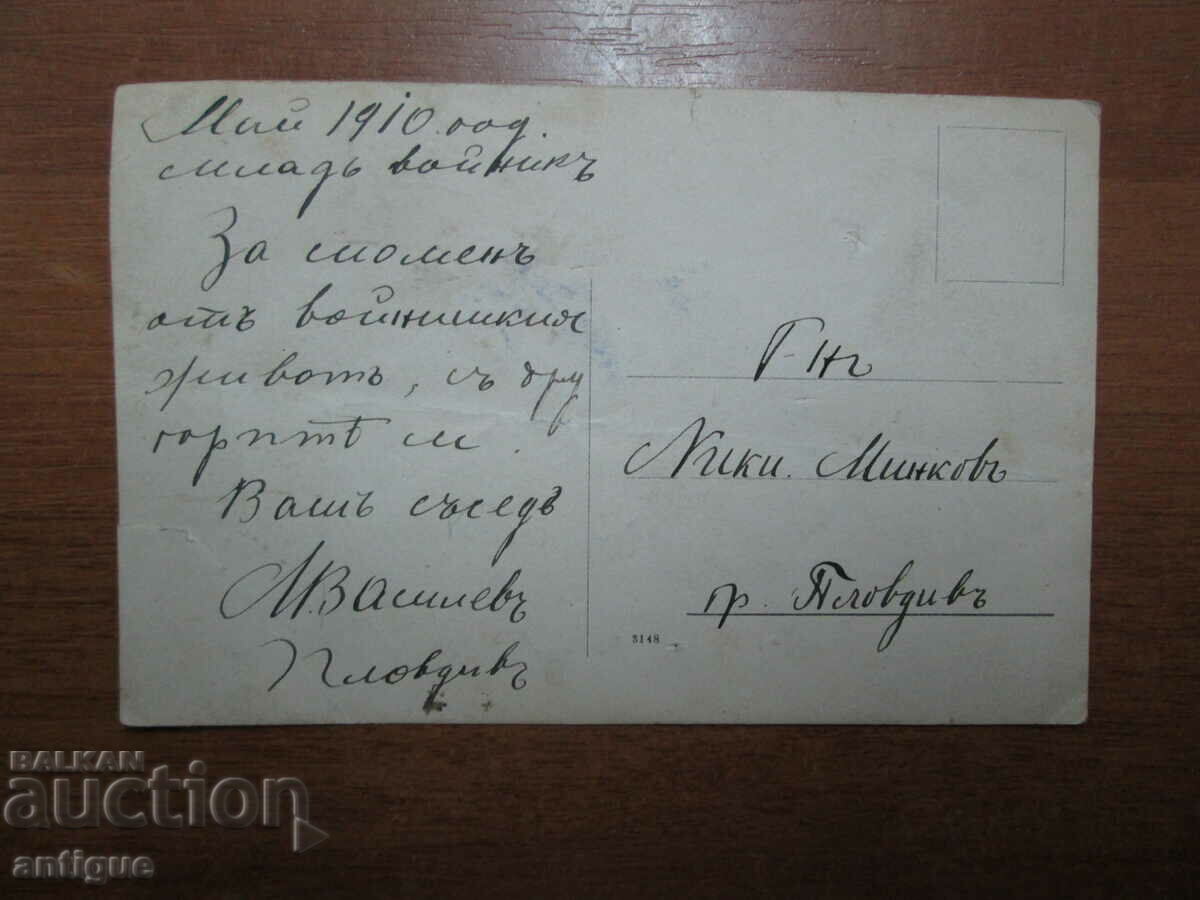 Май 1910 год.
младъ войникъ
За споменъ
отъ войнишкия
животъ, съ дру
гаритѣ ми.
Вашъ съседъ
М. Василевъ
Пловдивъ
Г-нъ
Ники. Минковъ
гр. Пловдивъ
3148
BALKAN
auction
antigue